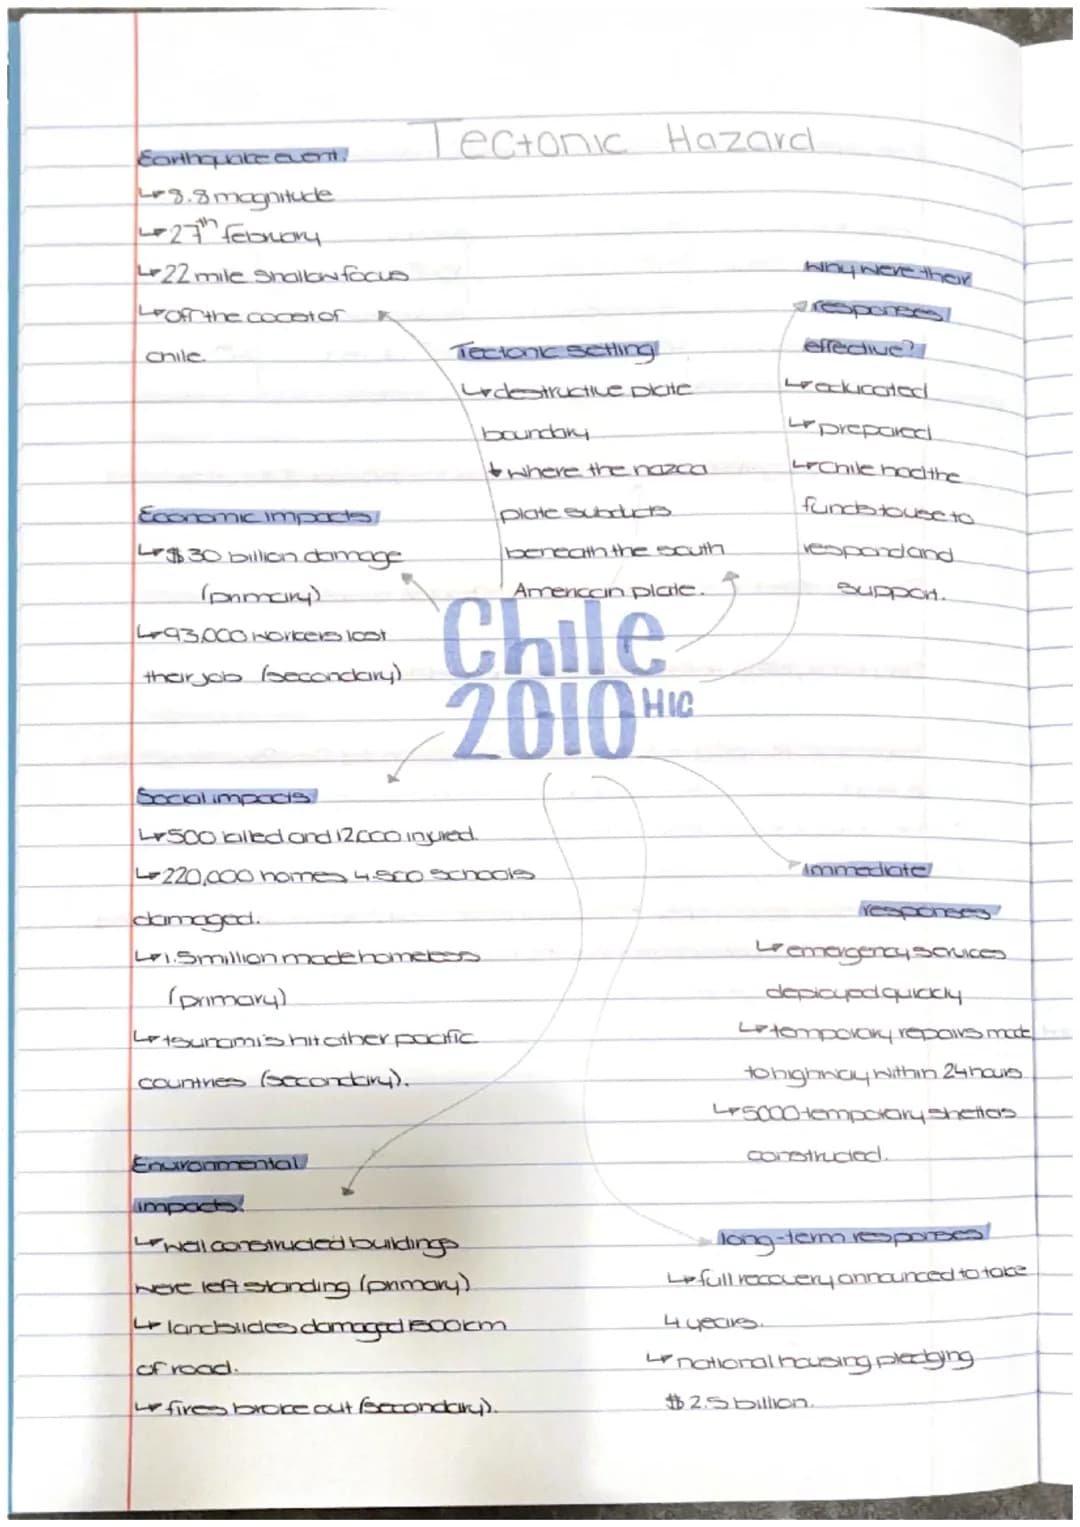 Tectonic Hazard
Earthquake event.
↳ 8.8 magnitude
↳ 27th february
↳ 22 mile shallow focus
↳ off the coast of
chile.
Tectonic setting
↳ destructive plate
boundary
↓ where the nazca
plate subducts
beneath the south
American plate.
Why were their
responses
effective?
↳ educated
↳ prepared
↳ Chile had the
funds to use to
respond and
support.
Economic impacts
↳ $30 billion damage
(primary)
↳ 93,000 workers lost
their job (secondary)
Chile
2010 HIC
Social impacts
↳ 500 killed and 12000 injured.
↳ 220,000 homes 4,500 schools
damaged.
↳ 1.5 million made homeless
(primary)
↳ tsunami's hit other pacific
countries (secondary).
Immediate
responses
↳ emergency services
deployed quickly
↳ temporary repairs made
to highway within 24 hours
↳ 5000 temporary shelters
constructed.
Environmental
impacts.
↳ well constructed buildings
were left standing (primary)
↳ landslides damaged 1500km
of road.
↳ fires broke out (secondary).
long-term responses
↳ full recovery announced to take
4 years.
↳ national housing pledging
$2.5 billion.